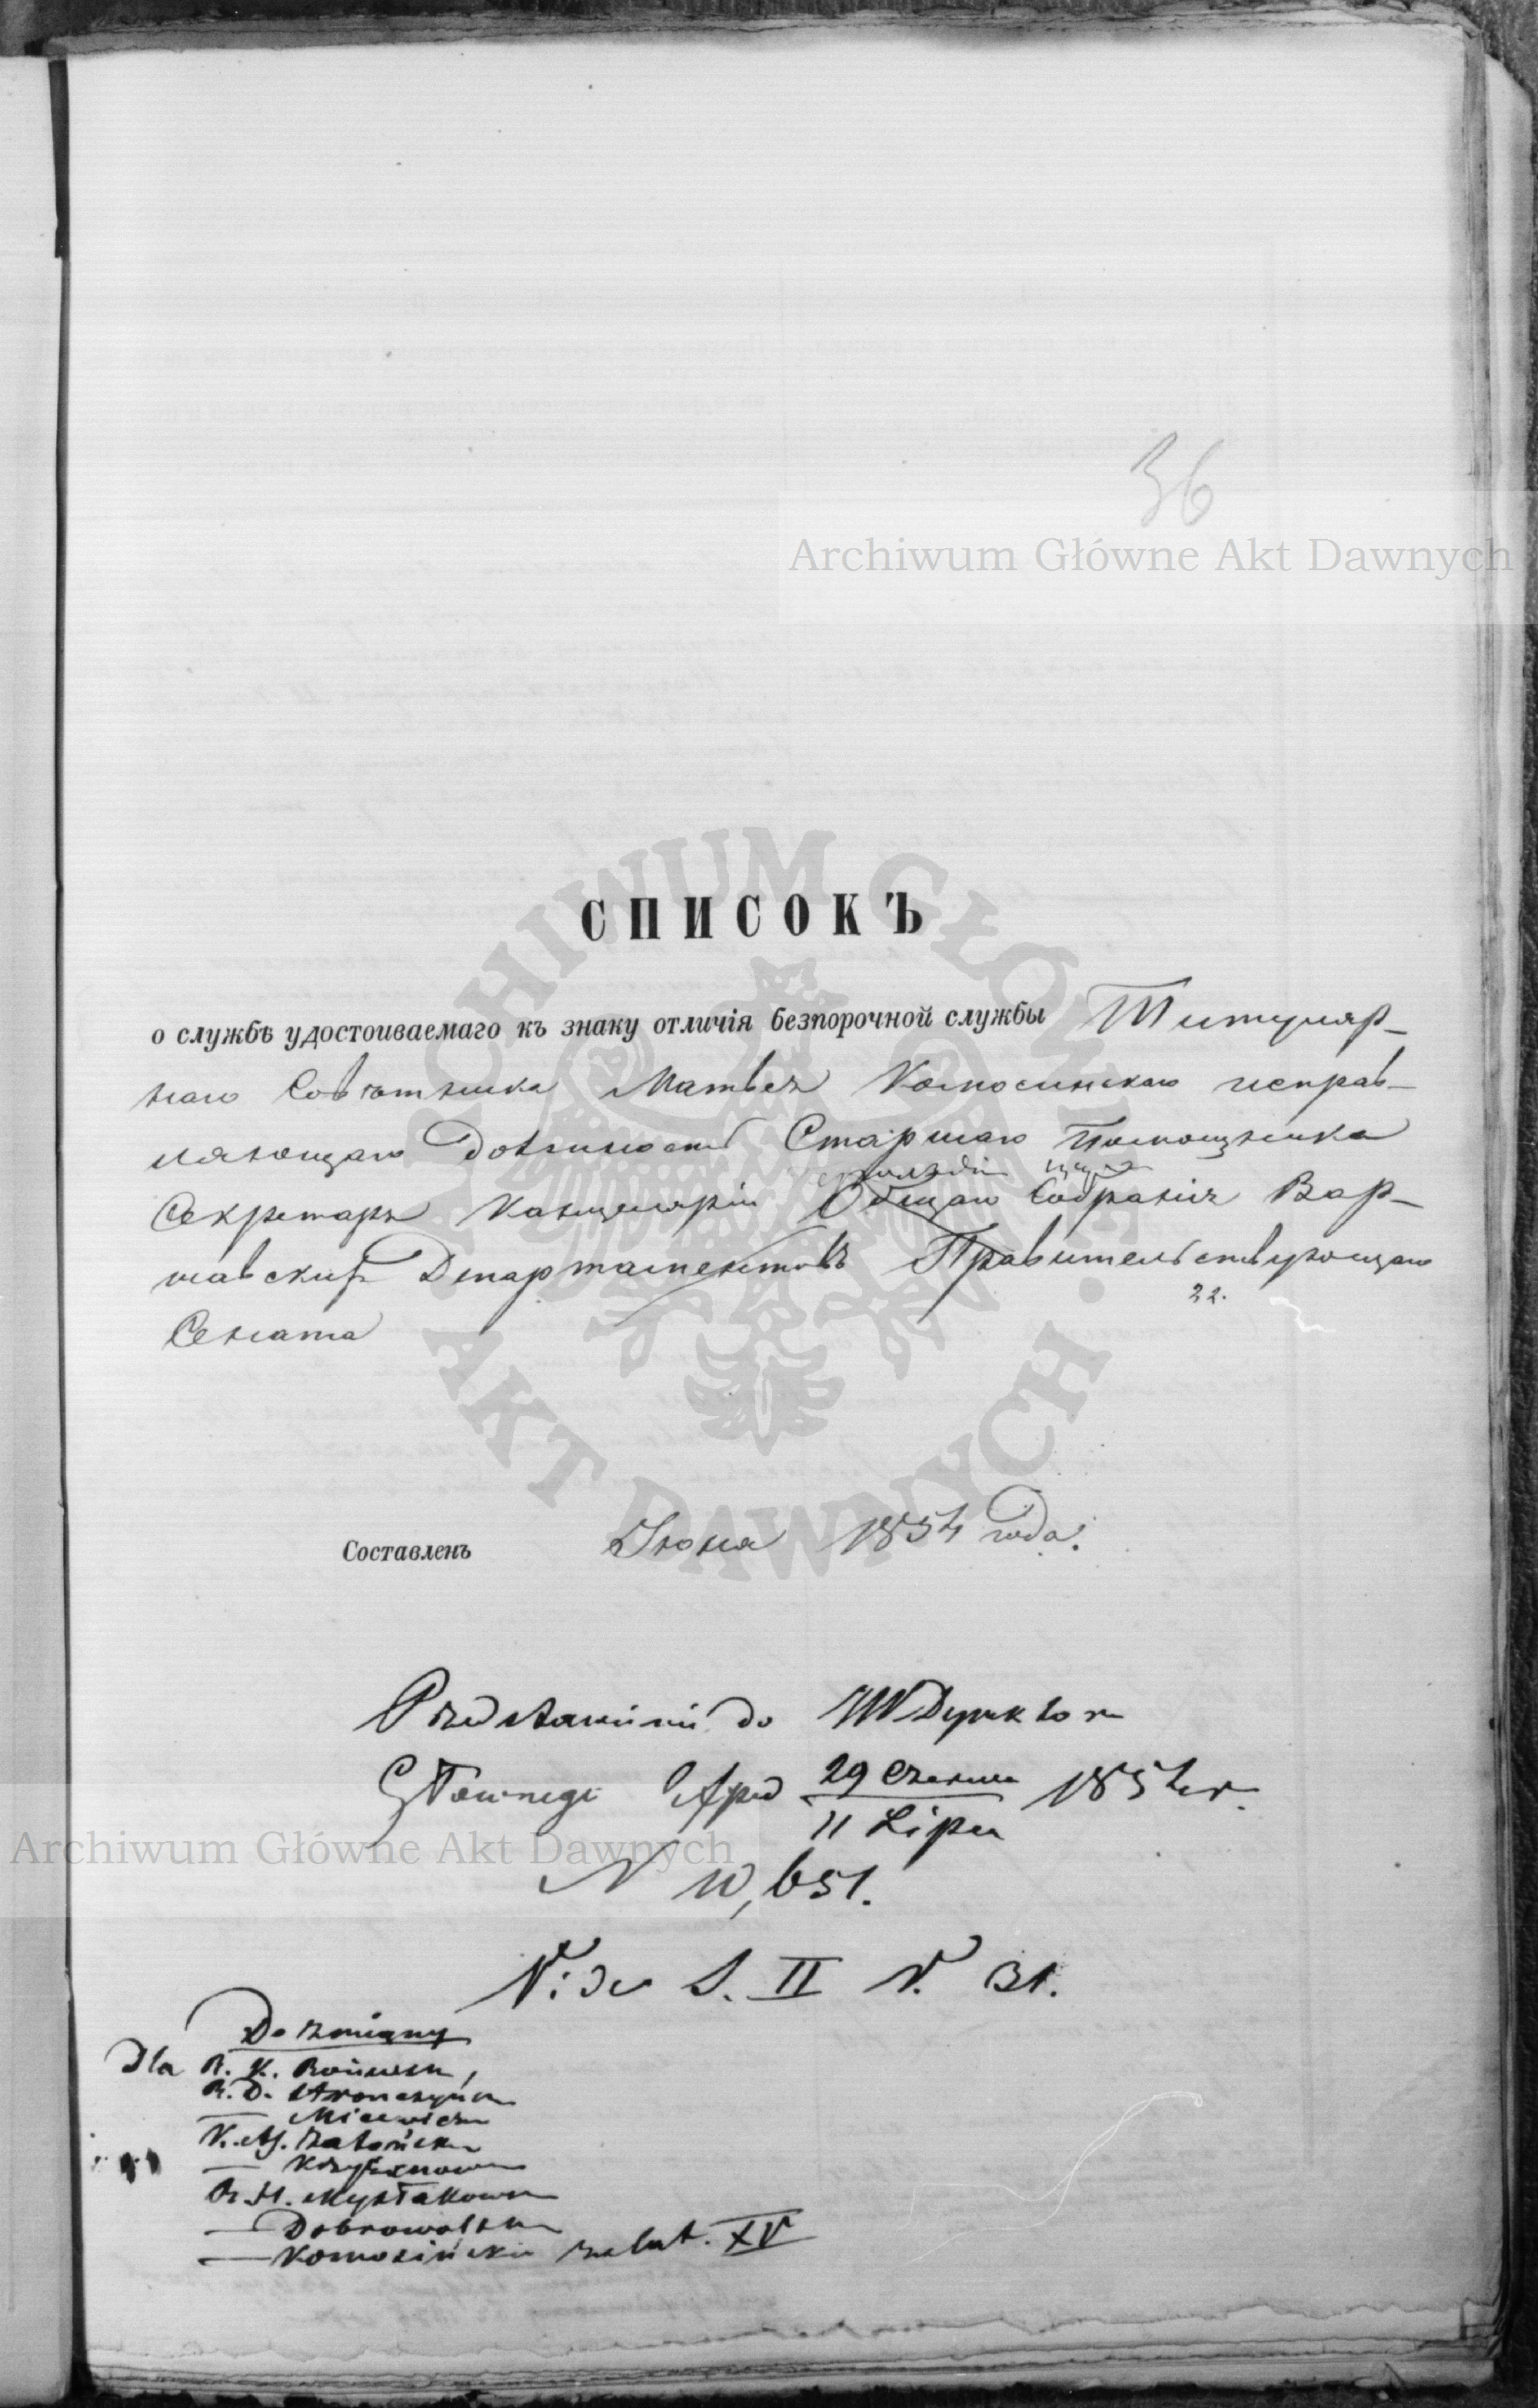 36
Archiwum Główne Akt Dawnych
СПИСОКЪ
о службѣ удостоиваемаго къ знаку отличія безпорочной службы Титуляр-
наго Совѣтника Матвея Комосинскаго исправ-
ляющаго Должность Старшаго Помощника
Секретаря Канцеляріи Общаго Собранія Вар-
шавскихъ Департаментовъ Правительствующаго
22.
Сената
Составленъ Іюня 1854 года.
Przedstawienie do JW Dyrektora
Głównego Spraw 29 Czerwca 1854 r.
11 Lipca
N 10,651.
Vide S. II N. 31.
Do zmiany
Dla R. K.
R. D. Stronczyńsk
— Micewicza
—
— Dobrowolsk
— Komosiński za lat. XV
Archiwum Główne Akt Dawnych
ARCHIWUM GŁÓWNE · AKT DAWNYCH ·